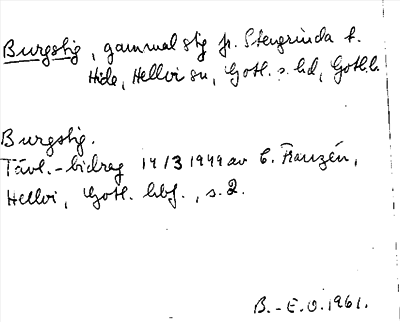 Burgstig, gammal stig fr. Stengrinda t.
Hide, Hellvi sn, Gotl. s. hd, Gotl. l.
Burgstig.
Tävl.-bidrag 14/3 1949 av C. Franzén,
Hellvi, Gotl. hbf., s. 2.
B.-E. O. 1961.